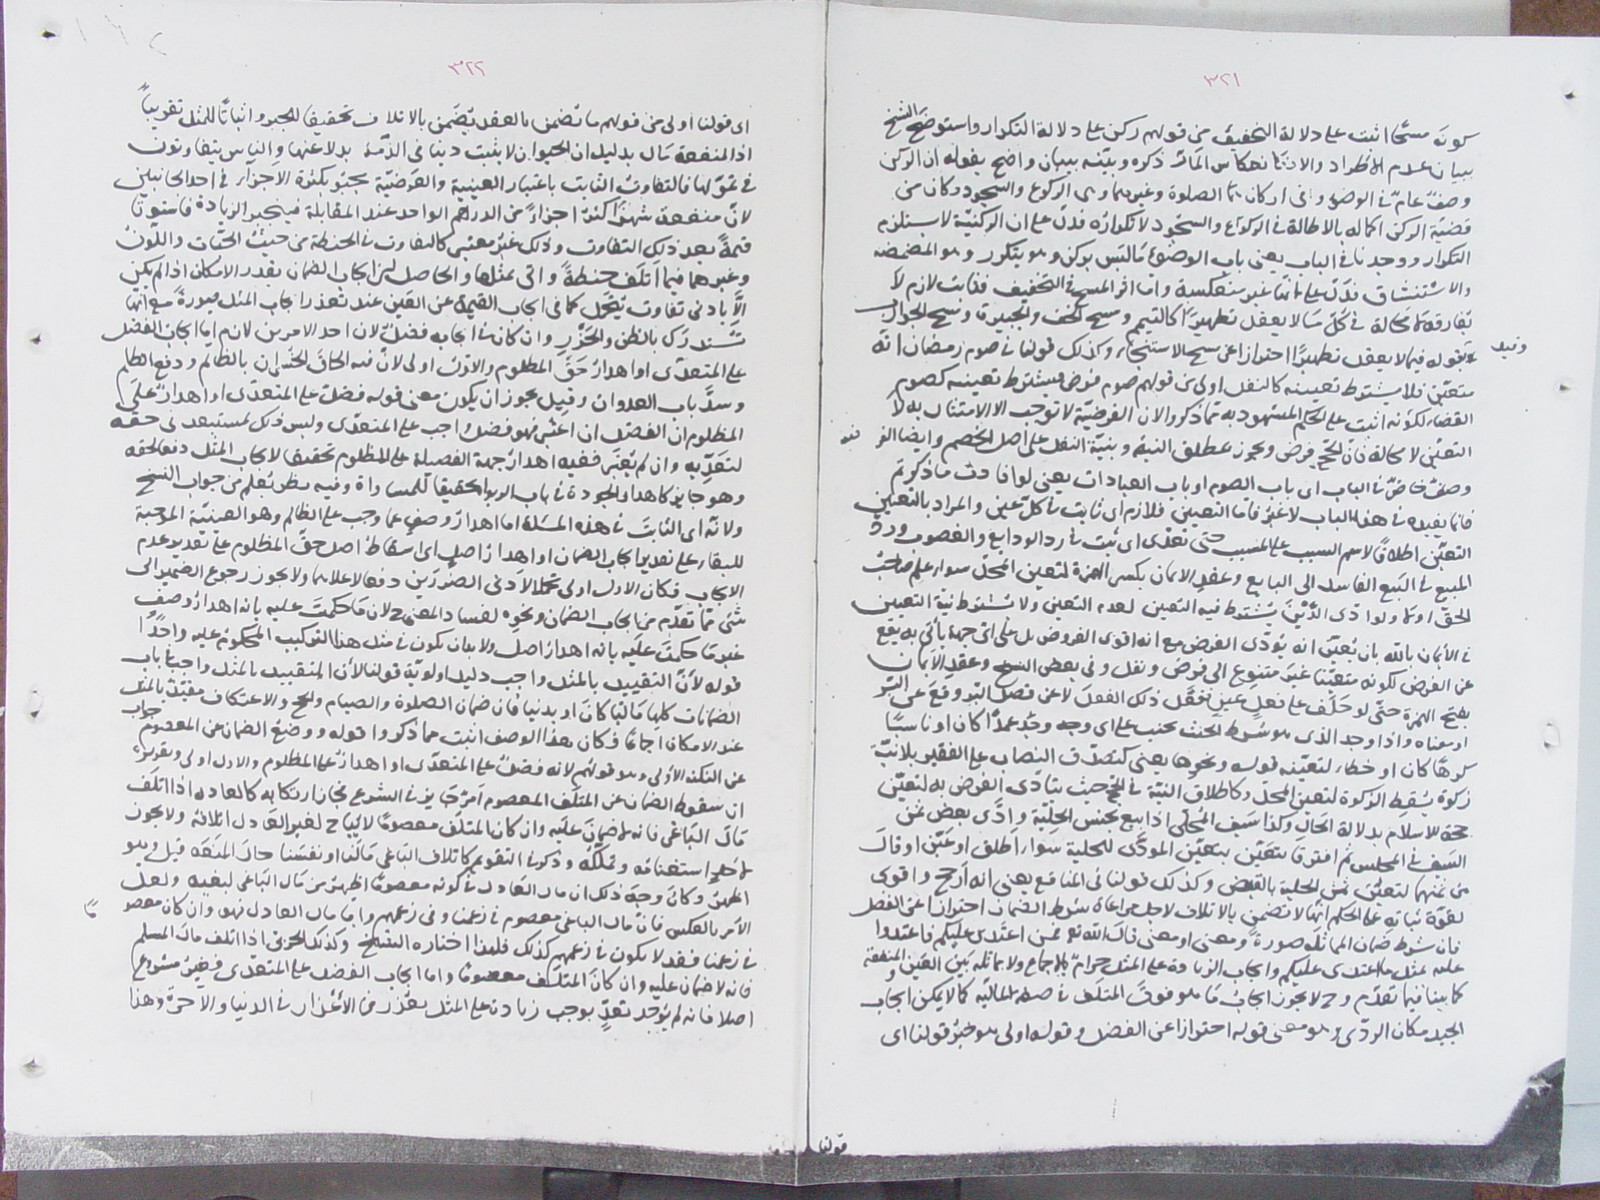 ٣٢١
كونه مسحا اثبت على دلالة التخفيف من قولهم ركن على دلالة التكرار واستوضح الشيخ
ببيان عدم الاطراد والانعكاس المار ذكره وبينه ببيان واضح بقوله ان الركن
وصف عام في الوضوء وفي اركان الصلوة وغيرهما وهى الركوع والسجود وكان من
قضية الركن اكماله بالاطالة في الركوع والسجود لا تكراره فدل على ان الركنية لا تستلزم
التكرار ووجدنا في الباب يعنى باب الوضوء ما ليس بركن وهو يتكرر وهو المضمضة
والاستنشاق فدل على انها غير منعكسة واما اثر المسح في التخفيف فثابت لازم لا
يفارقه لا محالة في كل ما لا يعقل تطهيرا كالتيمم ومسح الخف والجبيرة ومسح الجوارب
وقيد بقوله فيما لا يعقل تطهيرا احترازا عن مسح الاستنجاء وكذلك قولنا في صوم رمضان انه
متعين فلا يشترط تعيينه كالنفل اولى من قولهم صوم فرض فيشترط تعيينه كصوم
القضاء لكونه اثبت على الحكم المشهود به مما ذكروا لان الفرضية لا توجب الا الامتثال به لا
التعيين لا محالة فان الحج فرض ويجوز بمطلق النية وبنية النفل على اصل الخصم وايضا الفرضية
وصف خاص في الباب اى باب الصوم او باب العبادات يعنى لو افادت ما ذكرتم
فانما يفيده في هذا الباب لا غير فاما التعيين فلازم اى ثابت في كل عين والمراد بالتعيين
التعين اطلاقا لاسم السبب على المسبب حتى تعدى اى ثبت في رد الودايع والغصوب ورد
المبيع في البيع الفاسد الى البايع وعقد الايمان بكسر الهمزة لتعين المحل سواء علم صاحب
الحق او لا ولو ادى الدين يشترط فيه التعيين لعدم التعين ولا يشترط نية التعيين
في الايمان بالله بان يعين انه يؤدى الفرض مع انه اقوى الفروض بل على اى جهة يأتى به يقع
عن الفرض لكونه متعينا غير متنوع الى فرض ونفل وفى بعض النسخ وعقد الأيمان
بفتح الهمزة حتى لو حلف على فعل عين ففعل ذلك الفعل لا عن قصد البر وقع عن البر
او معناه واذا وجد الذى هو شرط الحنث يحنث على اى وجه وجد عمدا كان او ناسيا
كرها كان او خطاء لتعينه قوله ونحوها يعنى كتصدق النصاب على الفقير بلا نية
زكوة يسقط الزكوة لتعين المحل وكاطلاق النية في الحج حيث يتأدى الفرض به لتعين
حجة الاسلام بدلالة الحال وكذا سيف المحلى اذا بيع بجنس الحلية وادى بعض ثمن
السيف في المجلس ثم افترقا يتعين بتعين المؤدى للحلية سواء اطلق او عين او قال
من ثمنهما لتعين ثمن الحلية بالقبض وكذلك قولنا في المنافع يعنى انه أرجح واقوى
لقوة ثباته على الحكم انها لا تضمن بالاتلاف لاجل مراعاة شرط الضمان احترازا عن الفضل
فان شرط ضمان المماثلة صورة ومعنى او معنى قال الله تع فمن اعتدى عليكم فاعتدوا
عليه بمثل ما اعتدى عليكم وايجاب الزيادة على المثل حرام بالاجماع ولا مماثلة بين العين والمنفعة
كما بينا فيما تقدم وح لا يجوز ايجاب ما هو فوق المتلف في صفة المالية كما لا يمكن ايجاب
الجيد مكان الردى وهو معنى قوله احترازا عن الفضل وقوله اولى هو خبر قولنا اى
قولنا
٣٢٢
اى قولنا اولى من قولهم ما تضمن بالعقد يضمن بالاتلاف تحقيقا للجبر واثباتا للمثل تقريبا
اذ المنفعة مال بدليل ان الحيوان لا يثبت دينا في الذمة بدلا عنها والناس يتفاوتون
في تمولها فالتفاوت الثابت باعتبار العينية والعرضية يجبر بكثرة الاجزاء في احد الجانبين
لان منفعة شهر اكثر اجزاء من الدرهم الواحد عند المقابلة فينجبر الزيادة فاستويا
قيمة بعد ذلك التفاوت وذلك غير معتبر كالتفاوت في الحنطة من حيث الحبات واللون
وغيرهما فيما اتلف حنطة واتى بمثلها والحاصل ان ايجاب الضمان بقدر الامكان اذا لم يكن
الا بادنى تفاوت يتحمل كما في ايجاب القيمة عن العين عند تعذر ايجاب المثل صورة مع انها
تستدرك بالظن والحزر وان كان في ايجابه فضل لان احد الامرين لازم اما ايجاب الفضل
على المتعدى او اهدار حق المظلوم والاول اولى لان فيه الحاق الخسران بالظالم ودفع الظلم
وسد باب العدوان وقيل يجوز ان يكون معنى قوله فضل على المتعدى او اهدار على
المظلوم ان الفضل ان اعتبر فهو فضل واجب على المتعدى وليس ذلك بمستبعد في حقه
لتعديه وان لم يعتبر ففيه اهدار جهة الفضيلة على المظلوم تحقيقا لايجاب المثل دفعا لحقه
وهو جايز كاهدار الجودة في باب الربوا تحقيقا للمساواة وفيه نظر يعلم من جواب الشيخ
ولانه اى الثابت في هذه المسئلة اما اهدار وصف عما وجب على الظالم وهو العينية الموجبة
للبقاء على تقدير ايجاب الضمان او اهدار اصل اى اسقاط اصل حق المظلوم على تقدير عدم
الايجاب فكان الاول اولى تحملا لادنى الضررين دفعا لاعلاهما ولا يجوز رجوع الضمير الى
شئ مما تقدم من ايجاب الضمان ونحوه لفساد المعنى ح لان ما حكمت عليه بانه اهدار وصف
غير ما حكمت عليه بانه اهدار اصل ولا بد ان يكون في مثل هذا التركيب المحكوم عليه واحدا
قوله لان التقييد بالمثل واجب دليل اولوية قولنا لان التقييد بالمثل واجب في باب
الضمانات كلها ماليا كان او بدنيا فان ضمان الصلوة والصيام والحج والاعتكاف مقيد بالمثل
عند الامكان اجماعا فكان هذا الوصف اثبت مما ذكروا قوله ووضع الضمان عن المعصوم جواب
عن النكتة الاولى وهو قولهم لانه فضل على المتعدى او اهدار على المظلوم والاول اولى وتقريره
ان سقوط الضمان عن المتلف المعصوم امر جايز في الشرع فجاز ارتكابه كالعادل اذا اتلف
مال الباغى فانه لا ضمان عليه وان كان المتلف معصوما لا يباح لغير العادل اتلافه ولا يجوز
استغنامه وتملكه وذكر في التقويم كاتلاف الباغى مالنا او نفسنا حال المنعة قيل وهو
اظهر وكان وجه ذلك ان مال العادل في كونه معصوما اظهر من مال الباغى لبغيه ولعل
الامر بالعكس فان مال الباغى معصوم في زعمنا وفى زعمهم واما مال العادل فهو وان كان معصوما
في زعمنا فقد لا يكون في زعمهم كذلك فلهذا اختاره الشيخ وكذلك الحربى اذا اتلف مال المسلم
فانه لا ضمان عليه وان كان المتلف معصوما واما ايجاب الفضل على المتعدى فغير مشروع
اصلا فانه لم يوجد تعد يوجب زيادة على المثل بعذر من الاعذار في الدنيا والاخرة وهذا